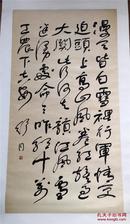 漫天皆白雪裡行軍情更
迫頭上高山風卷紅旗過
大關此行何去贛江風雪
迷漫處命令昨頒十萬
工農下吉安 舒同